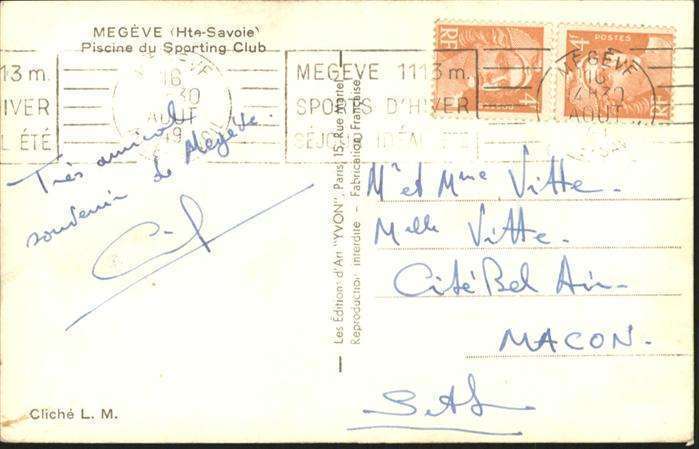 MEGÈVE (Hte-Savoie)
Piscine du Sporting Club
13 m.
HIVER
L ÉTÉ
MEGÈVE
16
30
AOUT
49
MEGÈVE 1113 m.
SPORTS D'HIVER
SÉJOUR IDÉAL
RF
4F
POSTES
4F
RF
MEGÈVE
16
AOUT
Très amical
souvenir de Megève.
Les Éditions d'Art "YVON", Paris, 15, Rue Martel
Reproduction interdite - Fabrication Française
Mr et Mme Vitte.
Melle Vitte.
Cité Bel Air.
MACON.
S&L
Cliché L. M.